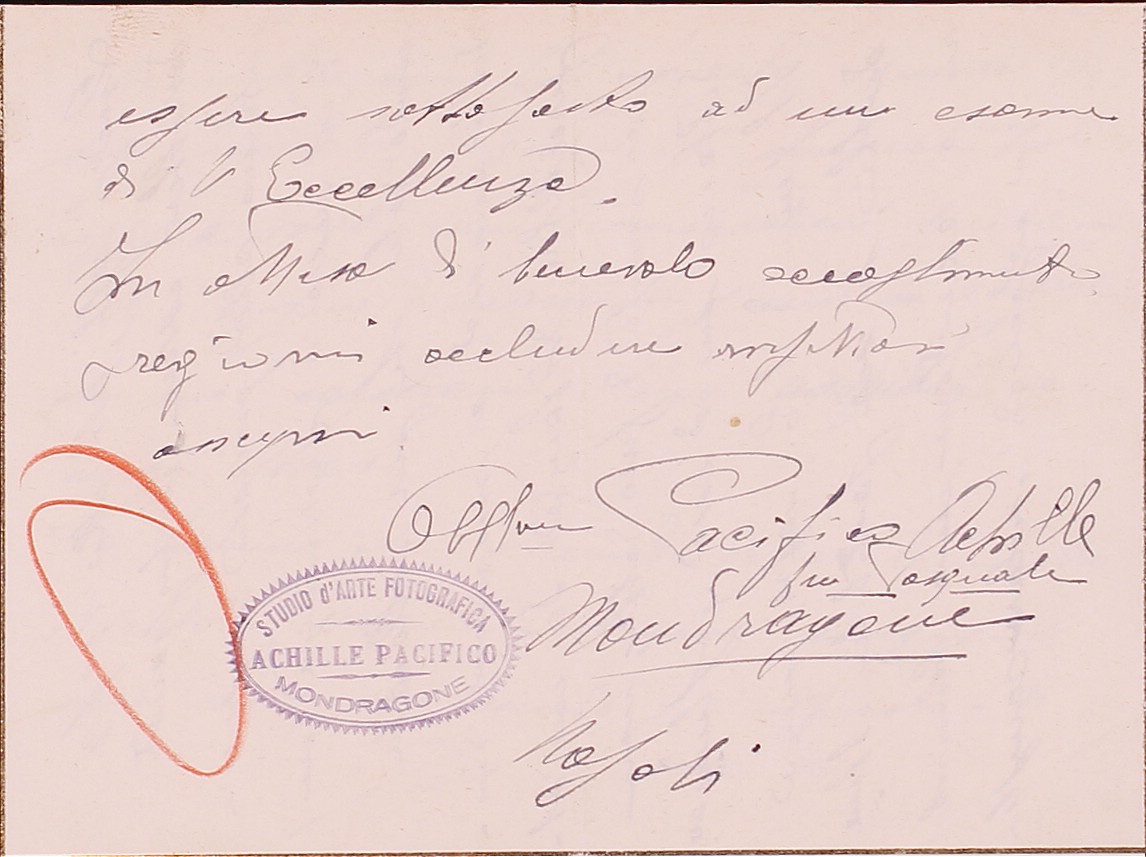 essere sottoposto ad un esame
di V Eccellenza.
In attesa di benevolo accoglimento
pregiomi accludere
ossequi.
Pacifico Achille
fu Pasquale
Mondragone
Napoli
STUDIO d'ARTE FOTOGRAFICA
ACHILLE PACIFICO
MONDRAGONE